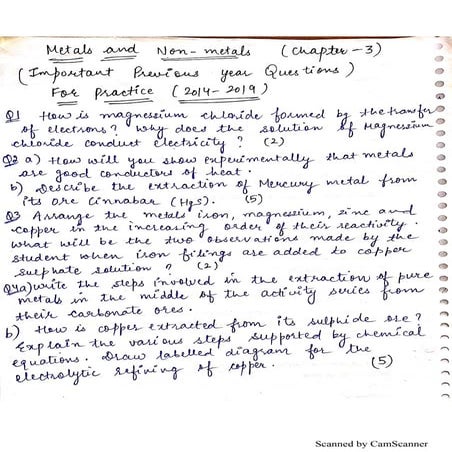 Metals and Non-metals (Chapter-3)
(Important Previous year Questions)
For Practice (2014-2019)
Q1 How is magnessium chloride formed by the transfer
of electrons? Why does the solution of Magnessium
chloride conduct electricity? (2)
Q2 a) How will you show experimentally that metals
are good conductors of heat.
b) Describe the extraction of Mercury metal from
its ore Cinnabar (HgS). (5)
Q3 Arrange the metals iron, magnessium, zinc and
copper in the increasing order of their reactivity.
What will be the two observations made by the
student when iron filings are added to copper
sulphate solution? (2)
Q4a) Write the steps involved in the extraction of pure
metals in the middle of the activity series from
their carbonate ores.
b) How is copper extracted from its sulphide ore?
Explain the various steps supported by chemical
equations. Draw labelled diagram for the
electrolytic refining of copper. (5)
Scanned by CamScanner